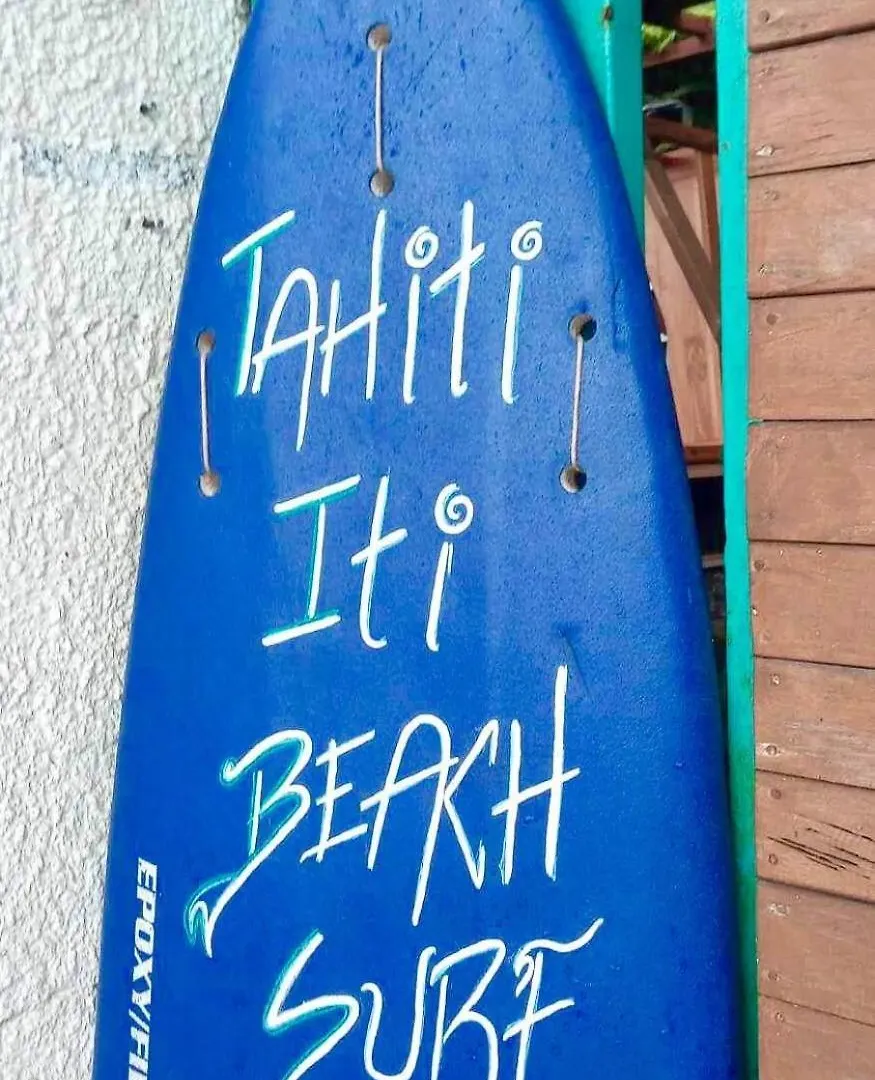 TAHiti
Iti
BEACH
SURF
EPOXY/FI